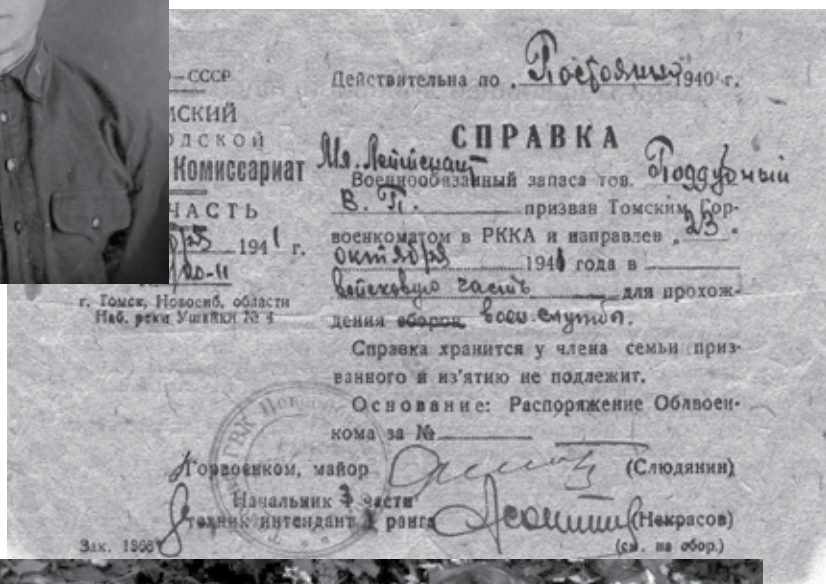 –СССР
МСКИЙ
ОДСКОЙ
Комиссариат
ЧАСТЬ
1941 г.
20-11
г. Томск, Новосиб. области
Наб. реки Ушайки № 4
Действительна по „Постоянно 1940 г.
СПРАВКА
Мл. Лейтенант
Военнообязанный запаса тов. Поддубный
В. П. призван Томским Гор-
военкоматом в РККА и направлен „23"
октября 1941 года в
войсковую часть для прохож-
дения сборов воен.службы.
Справка хранится у члена семьи приз-
ванного и из'ятию не подлежит.
Основание: Распоряжение Облвоен-
кома за №
Горвоенком, майор (Слюдянин)
Начальник 3 части
техник интендант 1 ранга (Некрасов)
Зак. 1866 (см. на обор.)